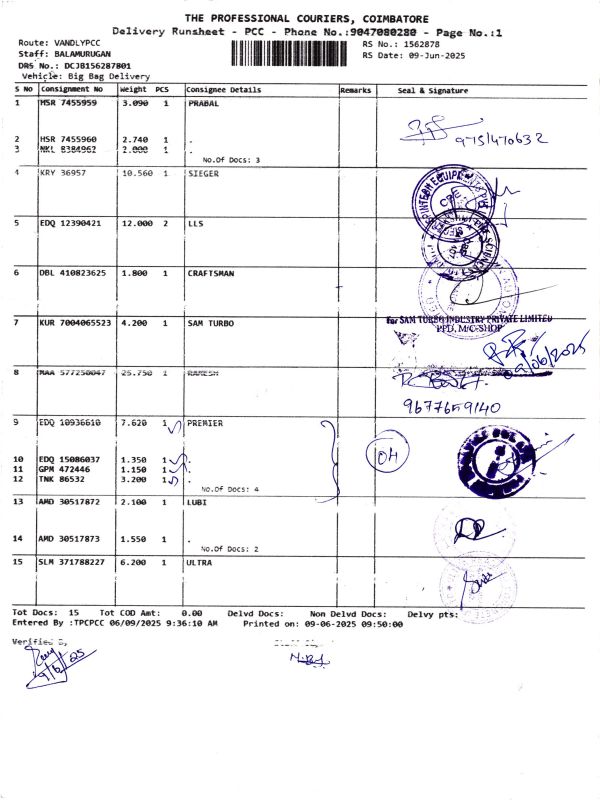 THE PROFESSIONAL COURIERS, COIMBATORE
Delivery Runsheet - PCC - Phone No.:9047080280 - Page No.:1
Route: VANDLYPCC
RS No.: 1562878
Staff: BALAMURUGAN
RS Date: 09-Jun-2025
DRS No.: DCJB156287801
Vehicle: Big Bag Delivery
S No Consignment No Weight PCS Consignee Details Remarks Seal & Signature
1 MSR 7455959 3.090 1 PRABAL
2 HSR 7455960 2.740 1 .
9751470632
3 NKL 8384962 2.000 1 .
No.Of Docs: 3
4 KRY 36957 10.560 1 SIEGER
5 EDQ 12390421 12.000 2 LLS
6 DBL 410823625 1.800 1 CRAFTSMAN
7 KUR 7004065523 4.200 1 SAM TURBO
For SAM TURBO INDUSTRY PRIVATE LIMITED
PPD, M/C-SHOP
09/06/2025
8 MAA 577250047 25.750 1 RAMESH
9677659140
9 EDQ 10936610 7.620 1 PREMIER
04
10 EDQ 15086037 1.350 1 .
11 GPM 472446 1.150 1 .
12 TNK 86532 3.200 1 .
No.Of Docs: 4
13 AMD 30517872 2.100 1 LUBI
14 AMD 30517873 1.550 1 .
No.Of Docs: 2
15 SLM 371788227 6.200 1 ULTRA
Tot Docs: 15 Tot COD Amt: 0.00 Delvd Docs: Non Delvd Docs: Delvy pts:
Entered By :TPCPCC 06/09/2025 9:36:10 AM Printed on: 09-06-2025 09:50:00
Verified
9/6/25